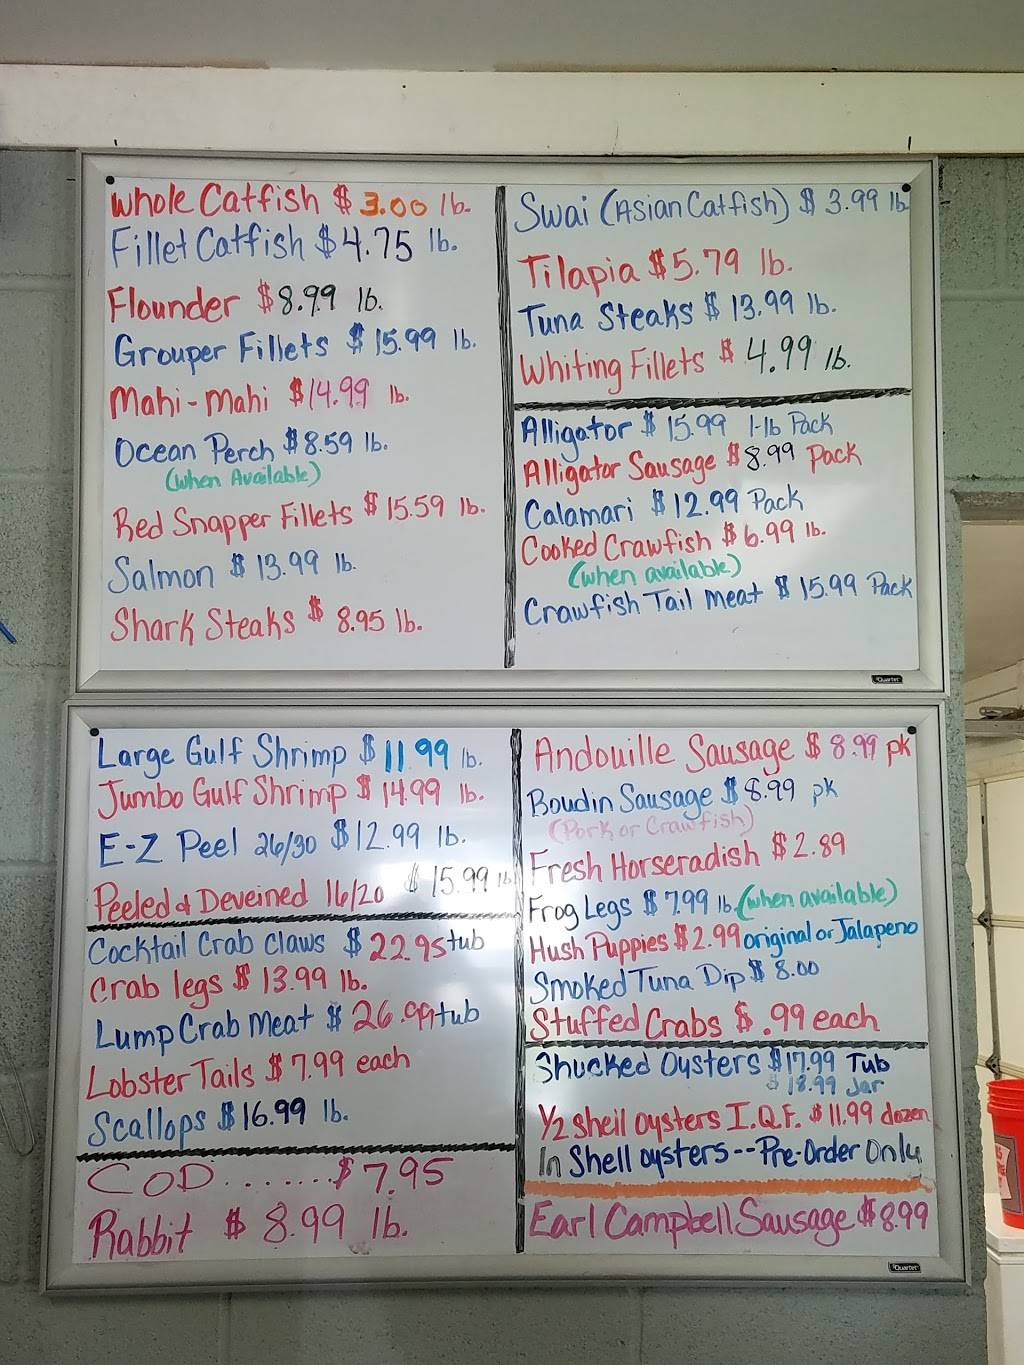 Whole Catfish $3.00 lb.
Fillet Catfish $4.75 lb.
Flounder $8.99 lb.
Grouper Fillets $15.99 lb.
Mahi-Mahi $14.99 lb.
Ocean Perch $8.59 lb.
(when Available)
Red Snapper Fillets $15.59 lb.
Salmon $13.99 lb.
Shark Steaks $8.95 lb.
Swai (Asian Catfish) $3.99 lb
Tilapia $5.79 lb.
Tuna Steaks $13.99 lb.
Whiting Fillets $4.99 lb.
Alligator $15.99 1-lb Pack
Alligator Sausage $8.99 Pack
Calamari $12.99 Pack
Cooked Crawfish $6.99 lb.
(when available)
Crawfish Tail Meat $15.99 Pack
Quartet
Large Gulf Shrimp $11.99 lb.
Jumbo Gulf Shrimp $14.99 lb.
E-Z Peel 26/30 $12.99 lb.
Peeled & Deveined 16/20 $15.99 lb
Cocktail Crab Claws $22.95 tub
Crab legs $13.99 lb.
Lump Crab Meat $26.99 tub
Lobster Tails $7.99 each
Scallops $16.99 lb.
COD.......$7.95
Rabbit $8.99 lb.
Andouille Sausage $8.99 pk
Boudin Sausage $8.99 pk
(Pork or Crawfish)
Fresh Horseradish $2.89
Frog Legs $7.99 lb. (when available)
Hush Puppies $2.99 original or Jalapeno
Smoked Tuna Dip $8.00
Stuffed Crabs $.99 each
Shucked Oysters $17.99 Tub
$18.99 Jar
1/2 Shell oysters I.Q.F. $11.99 dozen
In Shell oysters--Pre-Order Only
Earl Campbell Sausage $8.99
Quartet